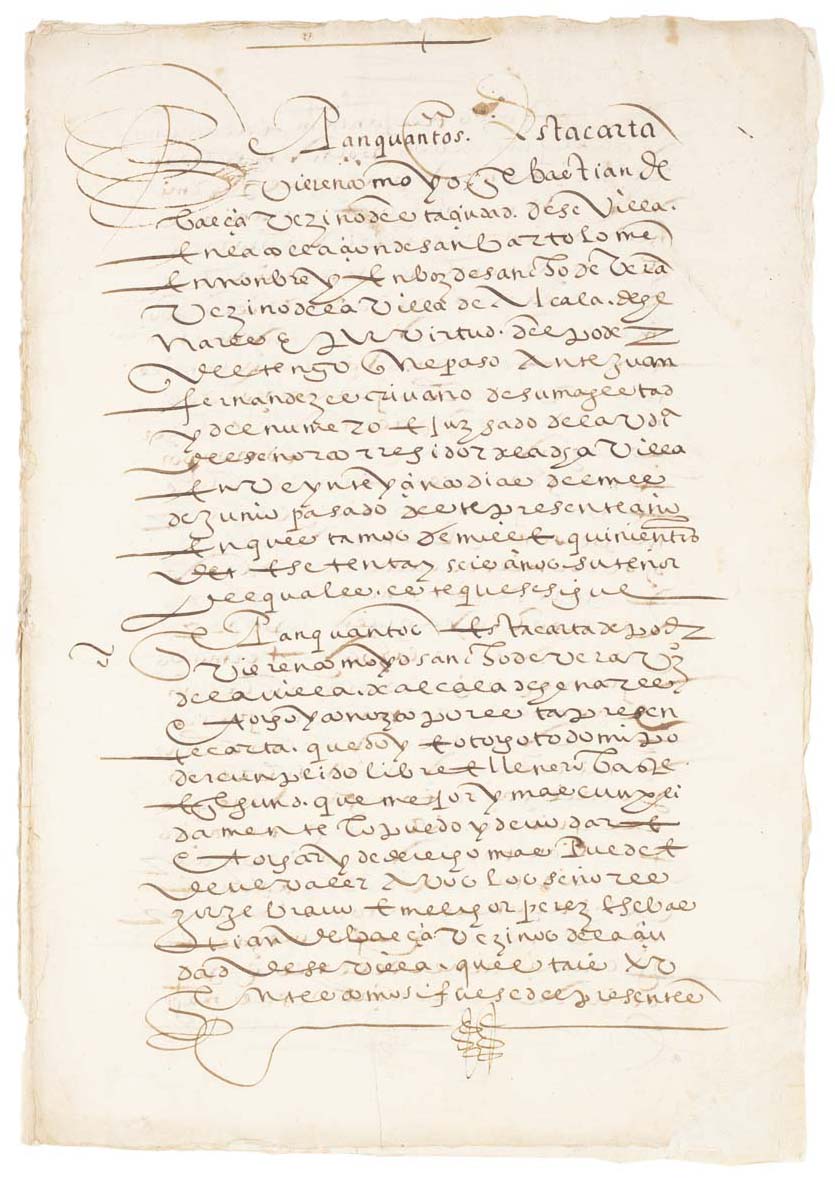 Sepan quantos Esta carta
Vieren como yo Sebastian de
baeça vezino desta çiudad de seVilla
En la collaçion de san bartolome
En nonbre y En boz de sancho de bera
Vezino de la Villa de Alcala de he
nares E por Virtud del poder
del tengo que paso Ante Juan
fernandez escrivano de su magestad
y del numero E Juzgado de la
del señor corregidor de la dha Villa
En Veynte y çinco dias del mes
de Junio pasado deste presente año
En questamos de mill E quinientos
E setenta y seis años su tenor
del qual es este que se sigue
Sepan quantos Esta carta de poder
Vieren como yo sancho de Vera Vzo
de la villa de alcala de henares
otorgo y conozco por esta presen
te carta que doy E otorgo todo mi po
der cunplido libre E llenero bastte
E segund que mejor y mas cunpli
damente lo puedo y devo dar E
otorgar y de derecho mas puede E
deve valer A vos los señores
Jorje bravo E melchor perez E seBas
tian de baeça Vezinos de la çiu
dad de seVilla questais
como si fuesedes presentes